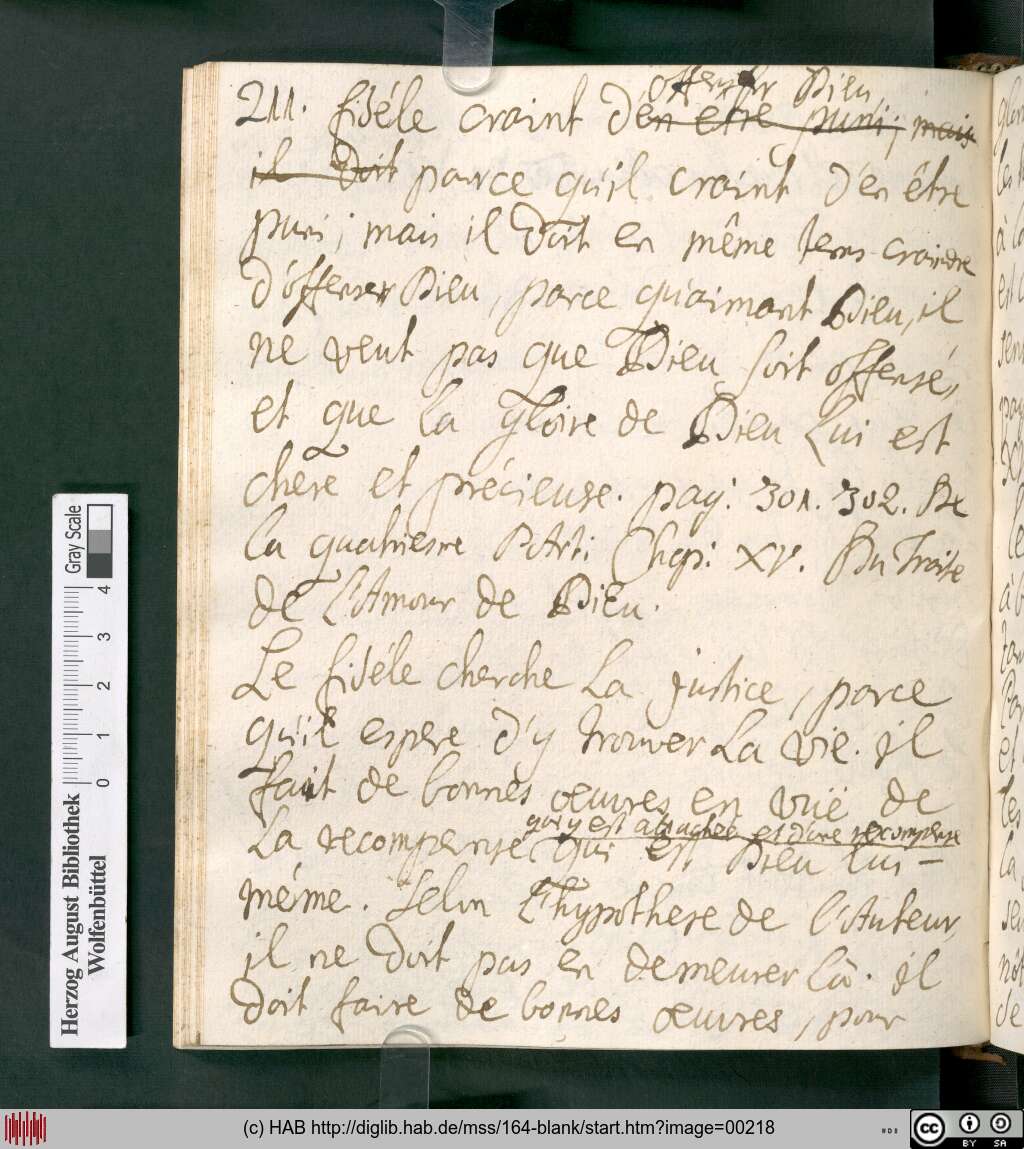 offenser Dieu
211. fidéle craint d'en etre puni; mais
il doit parce qu'il craint d'en être
puni; mais il doit en même tems craindre
d'offenser Dieu, parce qu'aimant Dieu, il
ne veut pas que Dieu soit offensé,
et que la gloire de Dieu Lui est
chere et précieuse. pag: 301. 302. De
la quatriesme Parti Chap: XV. Du Traite
de l'Amour de Dieu.
Le fidéle cherche la justice, parce
qu'il espere d'y trouver La vie. il
fait de bonnes œuvres en vuë de
qui y est attachée et d'une recompense
La recompense qui est Dieu lui-
même. Selon L'hypothese de l'Auteur,
il ne doit pas en demeurer là. il
doit faire de bonnes œuvres, pour
Gray Scale
0 1 2 3 4
Herzog August Bibliothek
Wolfenbüttel
(c) HAB http://diglib.hab.de/mss/164-blank/start.htm?image=00218
cc BY SA